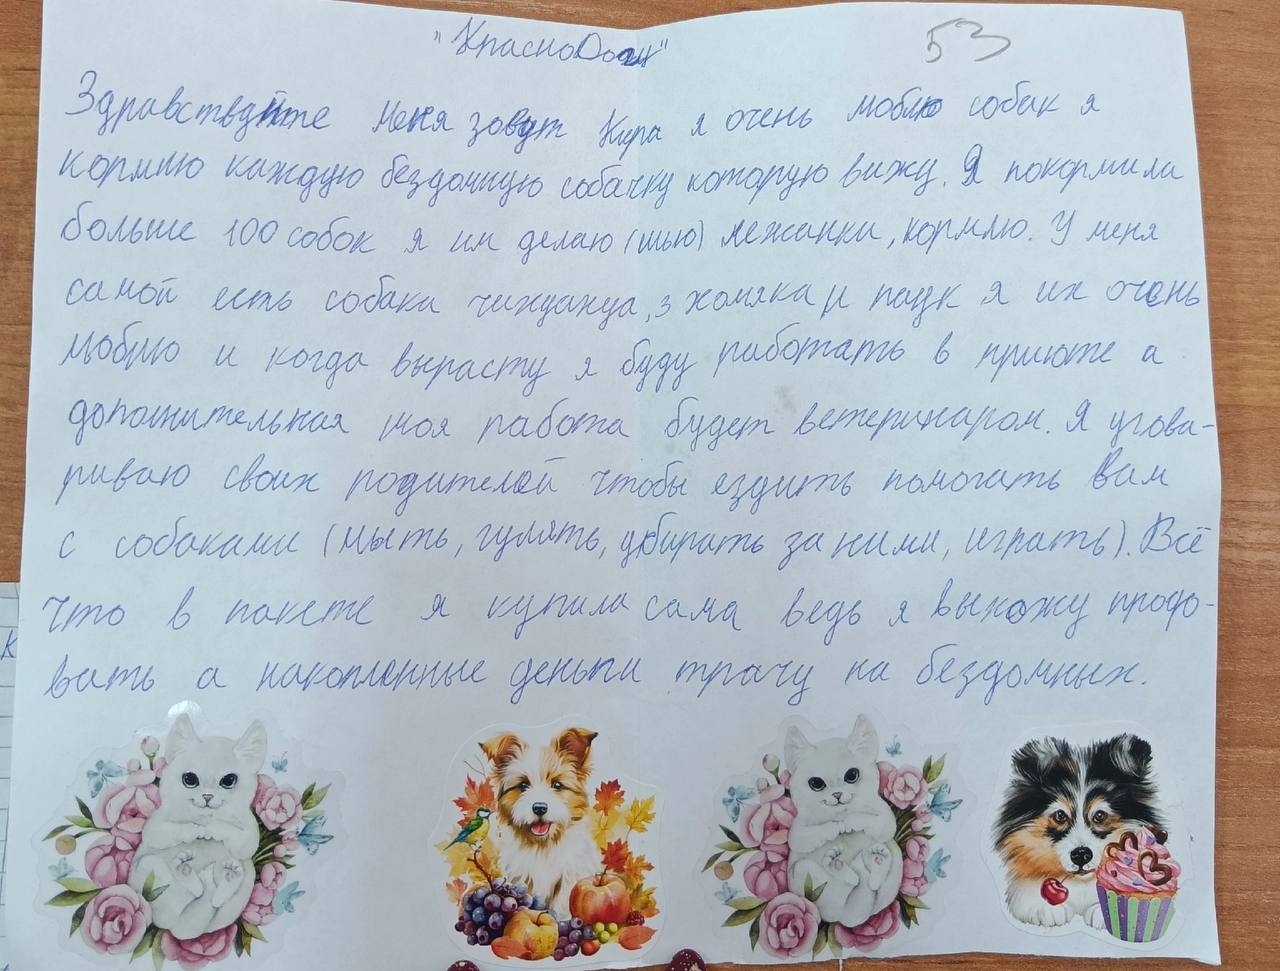 "КрасноDogи" 53
Здравствуйте меня зовут Кира я очень люблю собак я
кормлю каждую бездомную собачку которую вижу. Я покормила
больше 100 собок я им делаю (шью) лежанки, кормлю. У меня
самой есть собака чихуахуа, 3 хомяка и паук я их очень
люблю и когда вырасту я буду работать в приюте а
дополнительная моя работа будет ветеринаром. Я угова-
риваю своих родителей чтобы ездить помогать вам
с собаками (мыть, гулять, убирать за ними, играть). Всё
что в пакете я купила сама ведь я выхожу продо-
вать а накопленные деньги трачу на бездомных.